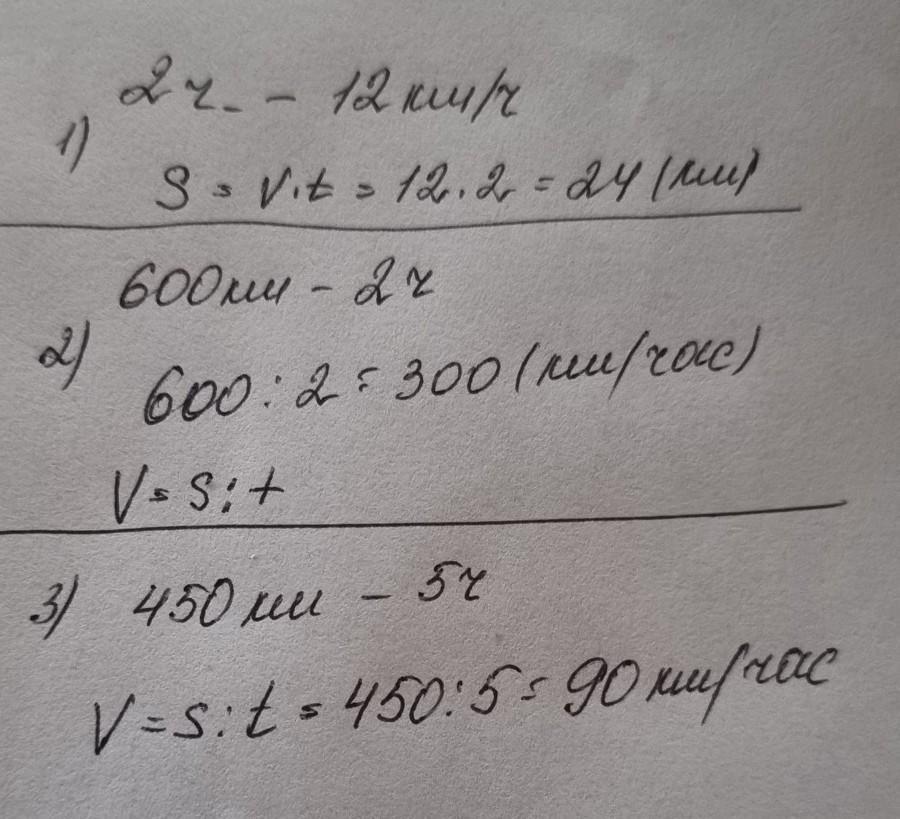 1) 2ч. - 12 км/ч
S = V·t = 12·2 = 24 (км)
2) 600 км - 2 ч
600 : 2 = 300 (км/час)
V = S : t
3) 450 км - 5 ч
V = S : t = 450 : 5 = 90 км/час